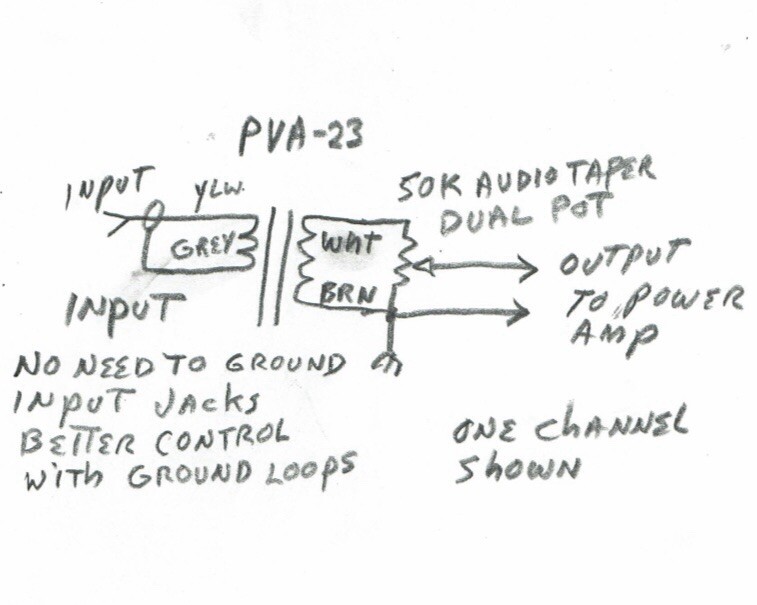 PVA-23
INPUT
YLW.
GREY
WHT
BRN
50K AUDIO TAPER
DUAL POT
OUTPUT
TO POWER
AMP
INPUT
NO NEED TO GROUND
INPUT JACKS
BETTER CONTROL
WITH GROUND LOOPS
ONE CHANNEL
SHOWN